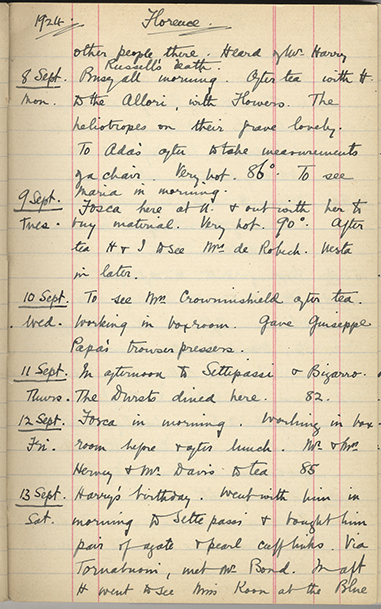 1924. Florence.
other people there. Heard of Mr. Harry
Russell's death.
8 Sept. Busy all morning. After tea with H
Mon. to the Allori, with Flowers. The
heliotropes on their grave lovely.
To Ada's after to take measurements
of a chair. Very hot. 86°. To see
Maria in morning.
9 Sept. Tosca here at 11. & out with her to
Tues. buy material. Very hot. 90°. After
tea H & I to see Mrs de Robeck. Nesta
in later.
10 Sept. To see Mrs. Crowninshield after tea.
Wed. Working in boxroom. Gave Guiseppe
Papa's trouser pressers.
11 Sept. In afternoon to Settepassi & Bizarro.
Thurs. The Dursts dined here. 82.
12 Sept. Tosca in morning. Working in box-
Fri. room before & after lunch. Mr. & Mrs
Hervey & Mr. Davis to tea 85
13 Sept. Harry's birthday. Went with him in
Sat. morning to Settepassi & bought him
pair of agate & pearl cufflinks. Via
Tornabuoni, met Mr. Bond. In aft
H went to see Miss Koon at the Blue